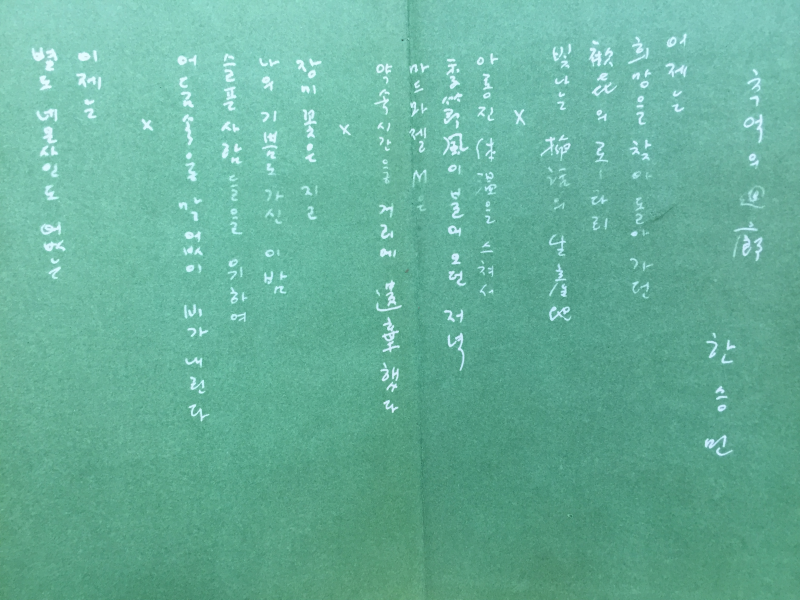 추억의 廻廊
한승민
어제는
희망을 찾아 돌아 가던
歡喜의 로ㅣ타리
빛나는 神話의 출發
×
아름진 体温을 스쳐서
薰風이 불어 오던 저녁
마드와젤 M은
약속시간을 거리에 遺棄했다
×
장미꽃은 지고
나의 기쁨도 가신 이 밤
슬픈 사람들을 위하여
어둠속을 막 어없이 비가 내린다
×
이제는
별도 네온싸인도 없는